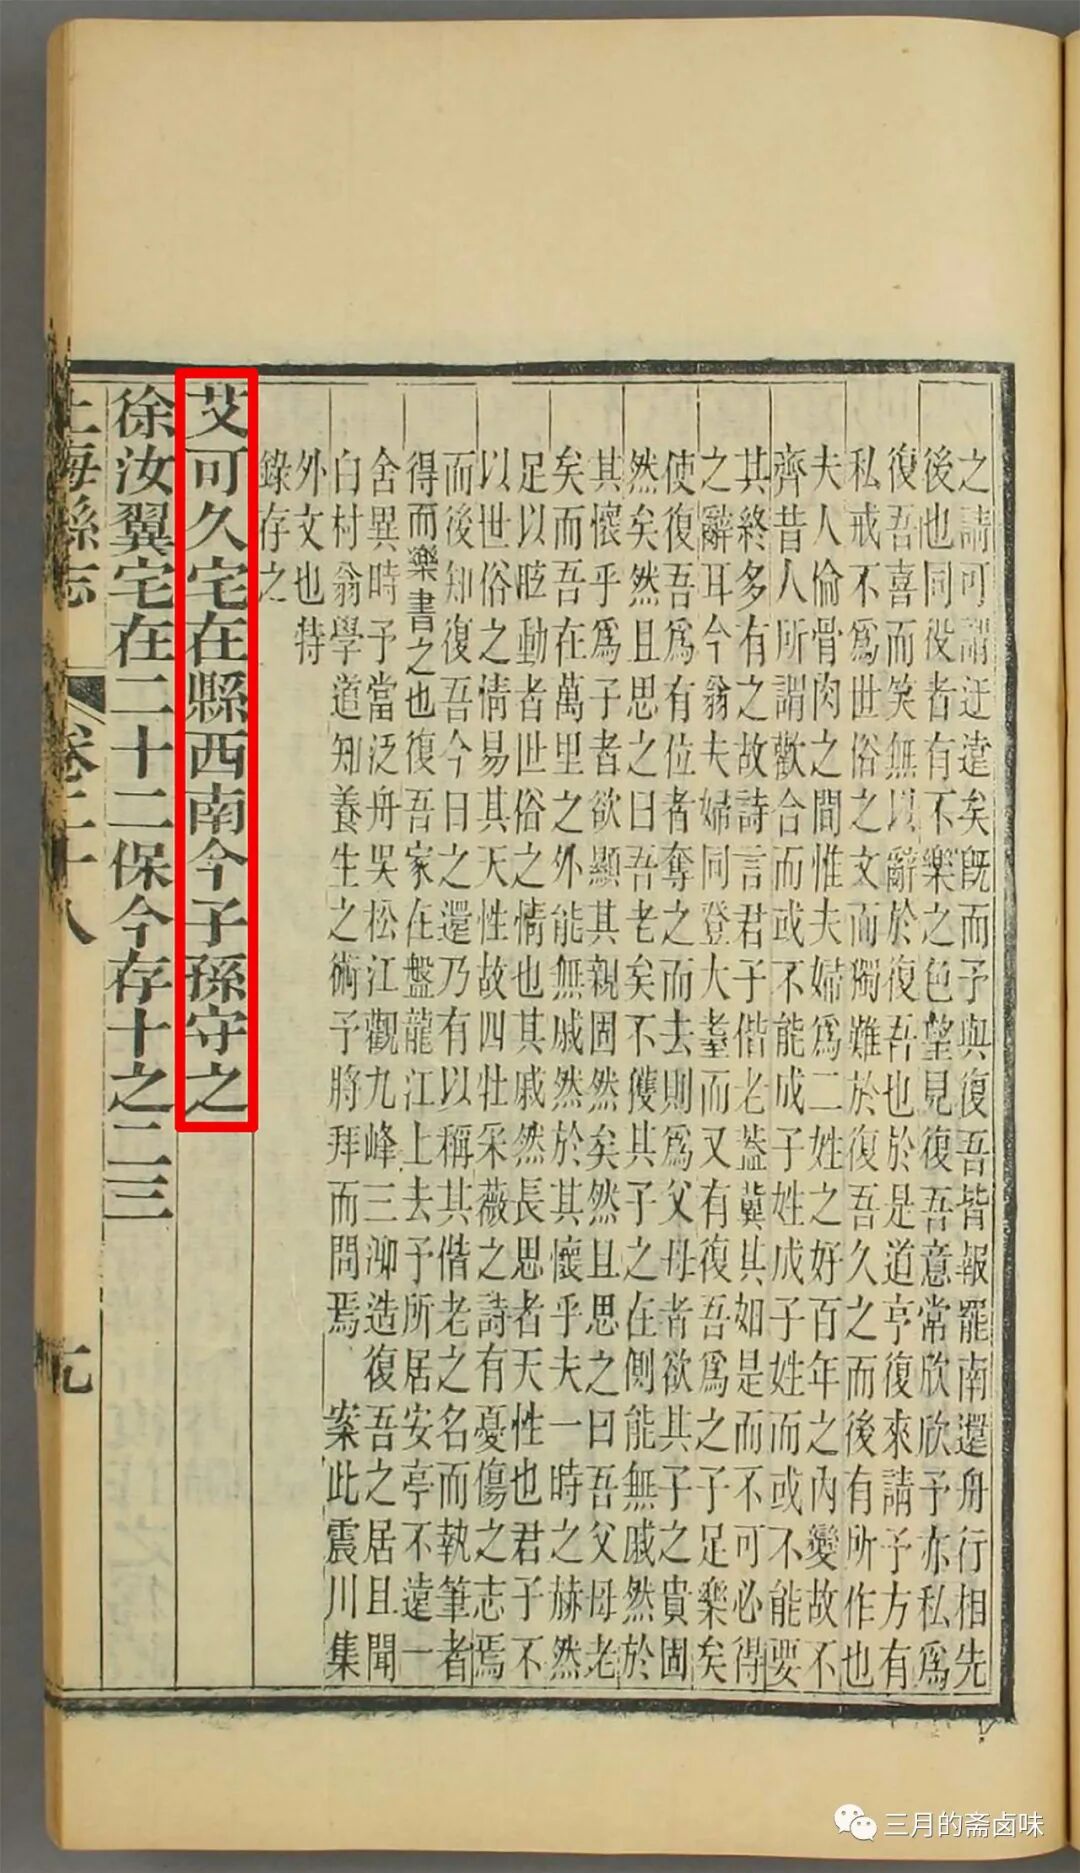 之請可謂迂遠矣旣而予與復吾皆報罷南還舟行相先
後也同役者有不樂之色望見復吾意常欣欣予亦私爲
復吾喜而笑無以辭於復吾也於是道亨復來請予方有
私戒不爲世俗之文而獨難於復吾久之而後有所作也
夫人倫骨肉之間惟夫婦爲二姓之好百年之內變故不
齊昔人所謂歡合而或不能成子姓成子姓而或不能要
其終多有之故詩言君子偕老蓋冀其如是而不可必得
之辭耳今翁夫婦同登大耋而又有復吾爲之子足樂矣
使復吾爲有位者奪之而去則爲父母者欲其子之貴固
然矣然且思之曰吾老矣不獲其子之在側能無戚然於
其懷乎爲子者欲顯其親固然矣然且思之曰吾父母老
矣而吾在萬里之外能無戚然於其懷乎夫一時之赫然
足以眩動者世俗之情也其戚然長思者天性也君子不
以世俗之情易其天性故四牡采薇之詩有憂傷之志焉
而後知復吾今日之還乃有以稱其偕老之名而執筆者
得而樂書之也復吾家在盤龍江上去予所居安亭不遠一
舍異時予當泛舟吳松江觀九峰三泖造復吾之居且聞
白村翁學道知養生之術予將拜而問焉 案此震川集
外文也特
錄存之
艾可久宅在縣西南今子孫守之
徐汝翼宅在二十二保今存十之二三
上海縣志 卷二十八 九
三月的斋卤味